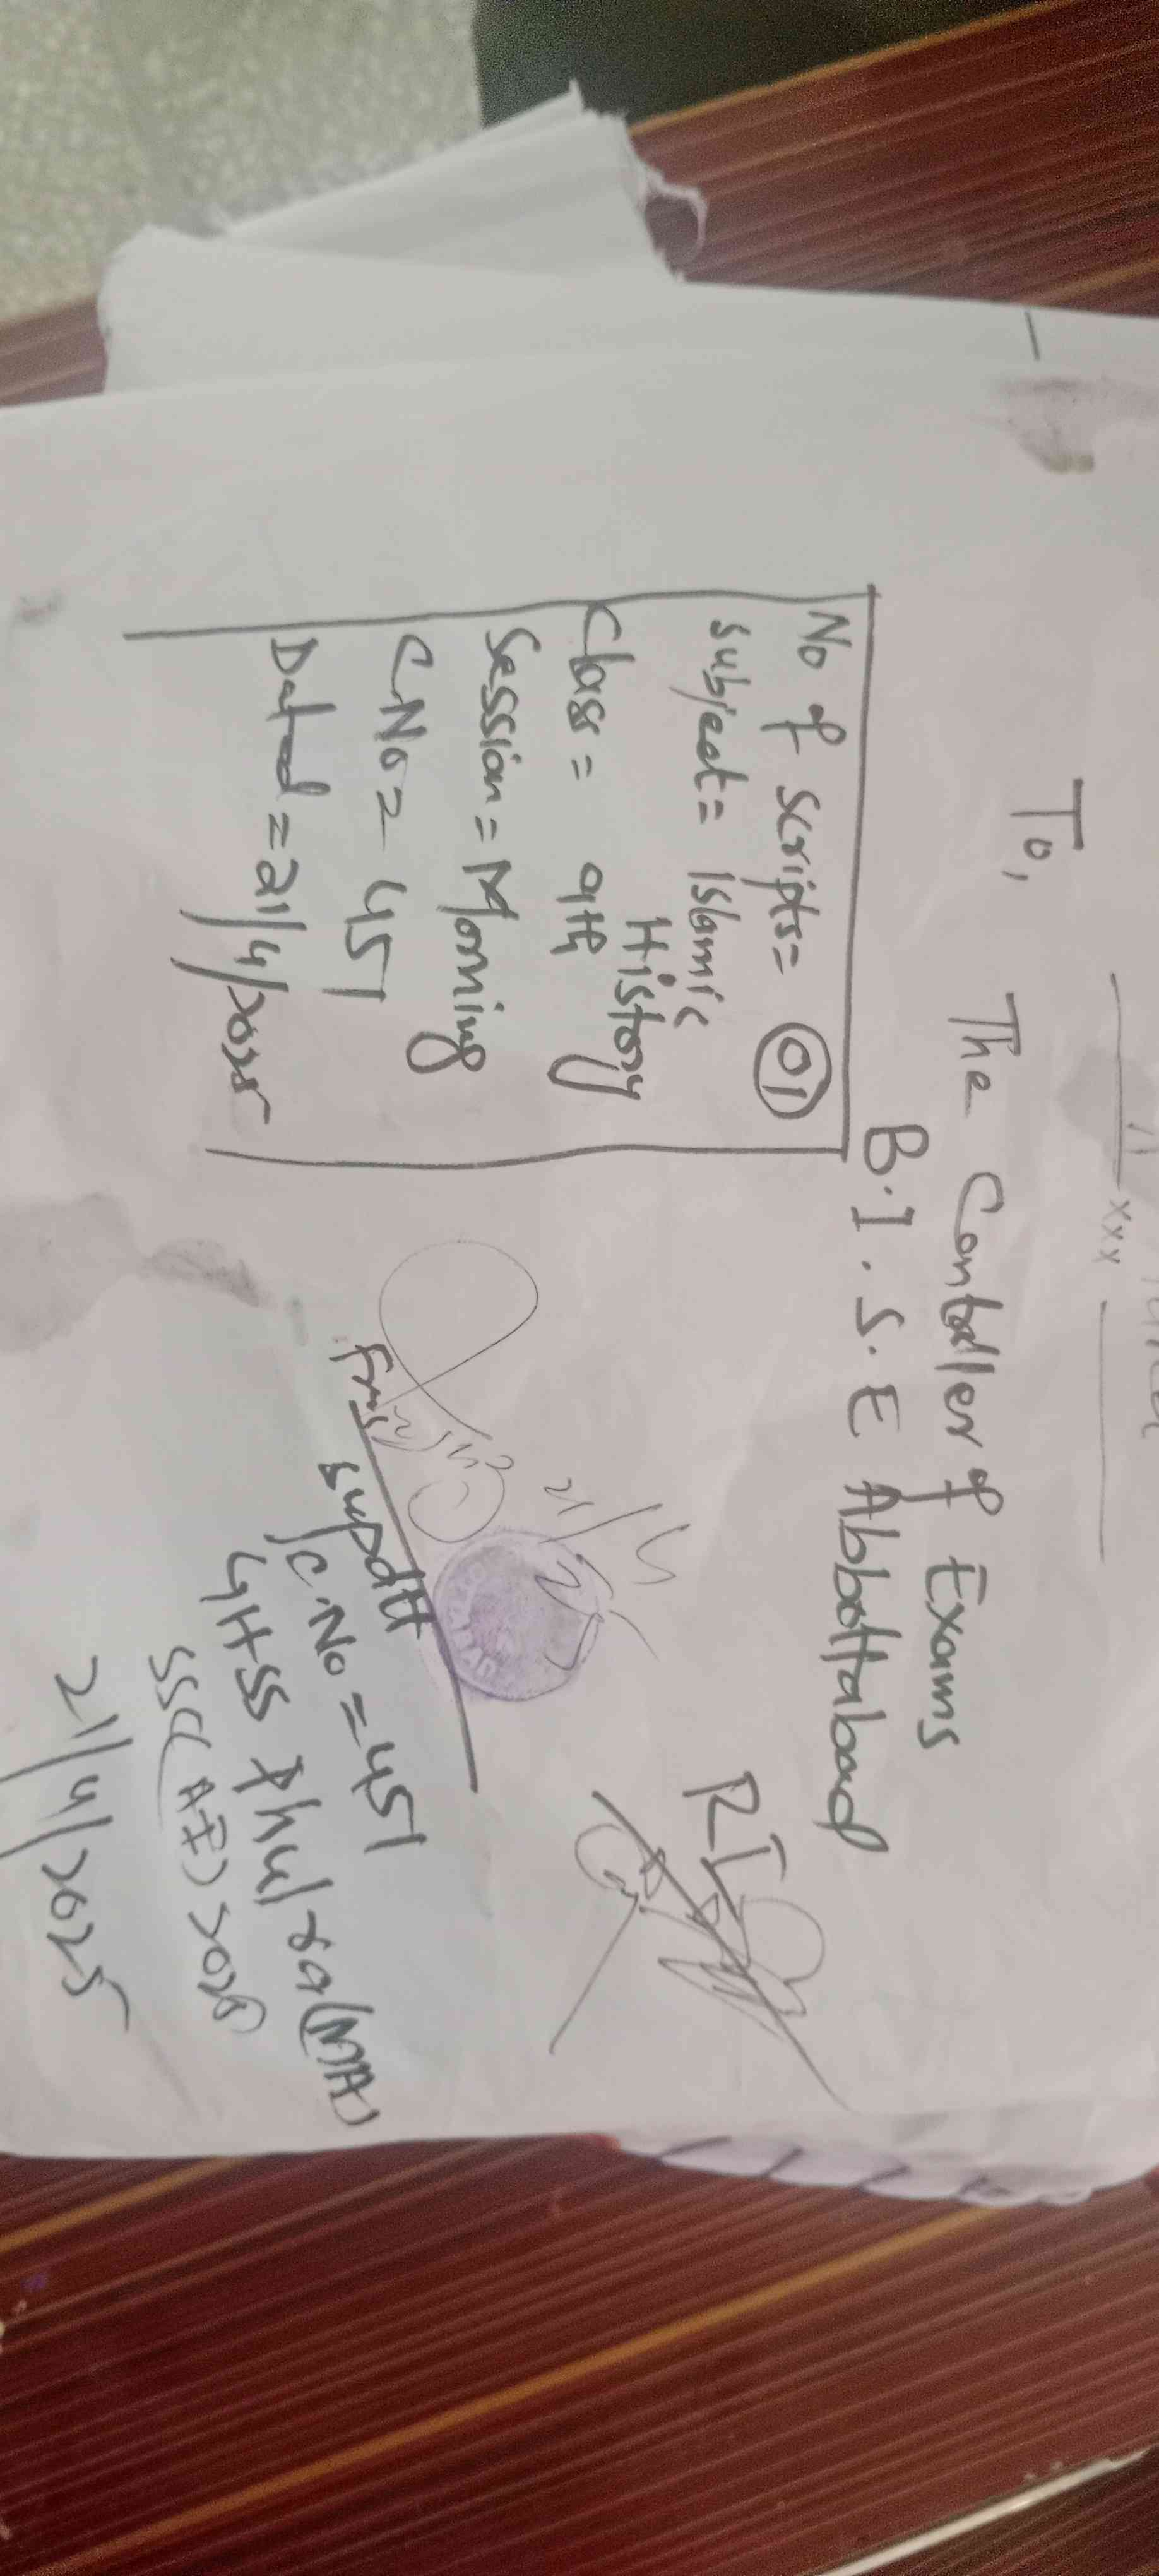 xxx
To,
The Controller of Exams
B.I.S.E Abbottabad
No of scripts= 01
Subject= Islamic
History
Class= 9th
Session= Morning
C.No= 451
Dated=21/4/2025
RI
21/4
From
supdtt
C.No=451
GHSS Phulra(MA)
SSC(A-I)2025
21/4/2025